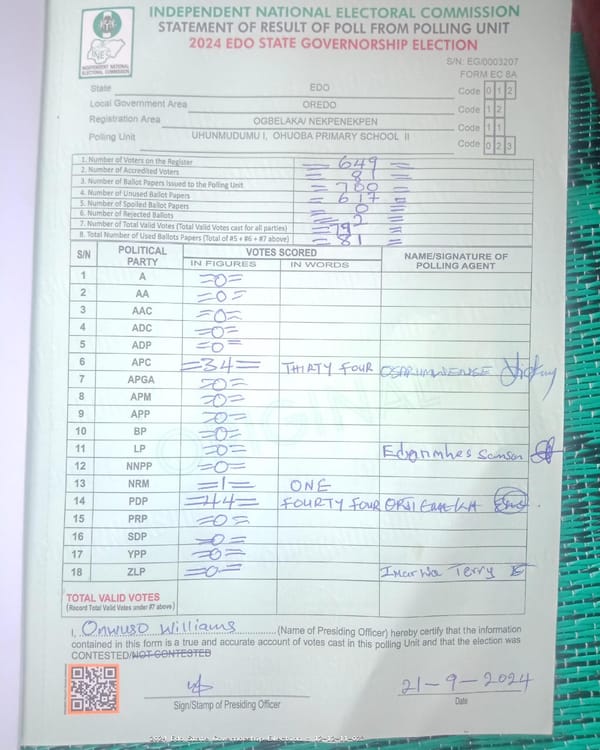 INDEPENDENT NATIONAL ELECTORAL COMMISSION
STATEMENT OF RESULT OF POLL FROM POLLING UNIT
2024 EDO STATE GOVERNORSHIP ELECTION
INEC
INDEPENDENT NATIONAL ELECTORAL COMMISSION
S/N: EG/0003207
FORM EC 8A
State EDO Code 0 1 2
Local Government Area OREDO Code 1 2
Registration Area OGBELAKA/ NEKPENEKPEN Code 1 1
Polling Unit UHUNMUDUMU I, OHUOBA PRIMARY SCHOOL II Code 0 2 3
1. Number of Voters on the Register = 649 =
2. Number of Accredited Voters = 81 =
3. Number of Ballot Papers Issued to the Polling Unit = 700 =
4. Number of Unused Ballot Papers = 617 =
5. Number of Spoiled Ballot Papers = 0 =
6. Number of Rejected Ballots = 2 =
7. Number of Total Valid Votes (Total Valid Votes cast for all parties) = 79 =
8. Total Number of Used Ballots Papers (Total of #5 + #6 + #7 above) = 81 =
S/N POLITICAL PARTY VOTES SCORED NAME/SIGNATURE OF POLLING AGENT
IN FIGURES IN WORDS
1 A =0=
2 AA =0=
3 AAC =0=
4 ADC =0=
5 ADP =0=
6 APC =34= THIRTY FOUR
7 APGA =0=
8 APM =0=
9 APP =0=
10 BP =0=
11 LP =0= Samson
12 NNPP =0=
13 NRM =1= ONE
14 PDP =44= FOURTY FOUR
15 PRP =0=
16 SDP =0=
17 YPP =0=
18 ZLP =0= Terry
TOTAL VALID VOTES
(Record Total Valid Votes under #7 above)
I, Onwuso Williams (Name of Presiding Officer) hereby certify that the information
contained in this form is a true and accurate account of votes cast in this polling Unit and that the election was
CONTESTED/NOT CONTESTED
21-9-2024
Sign/Stamp of Presiding Officer Date